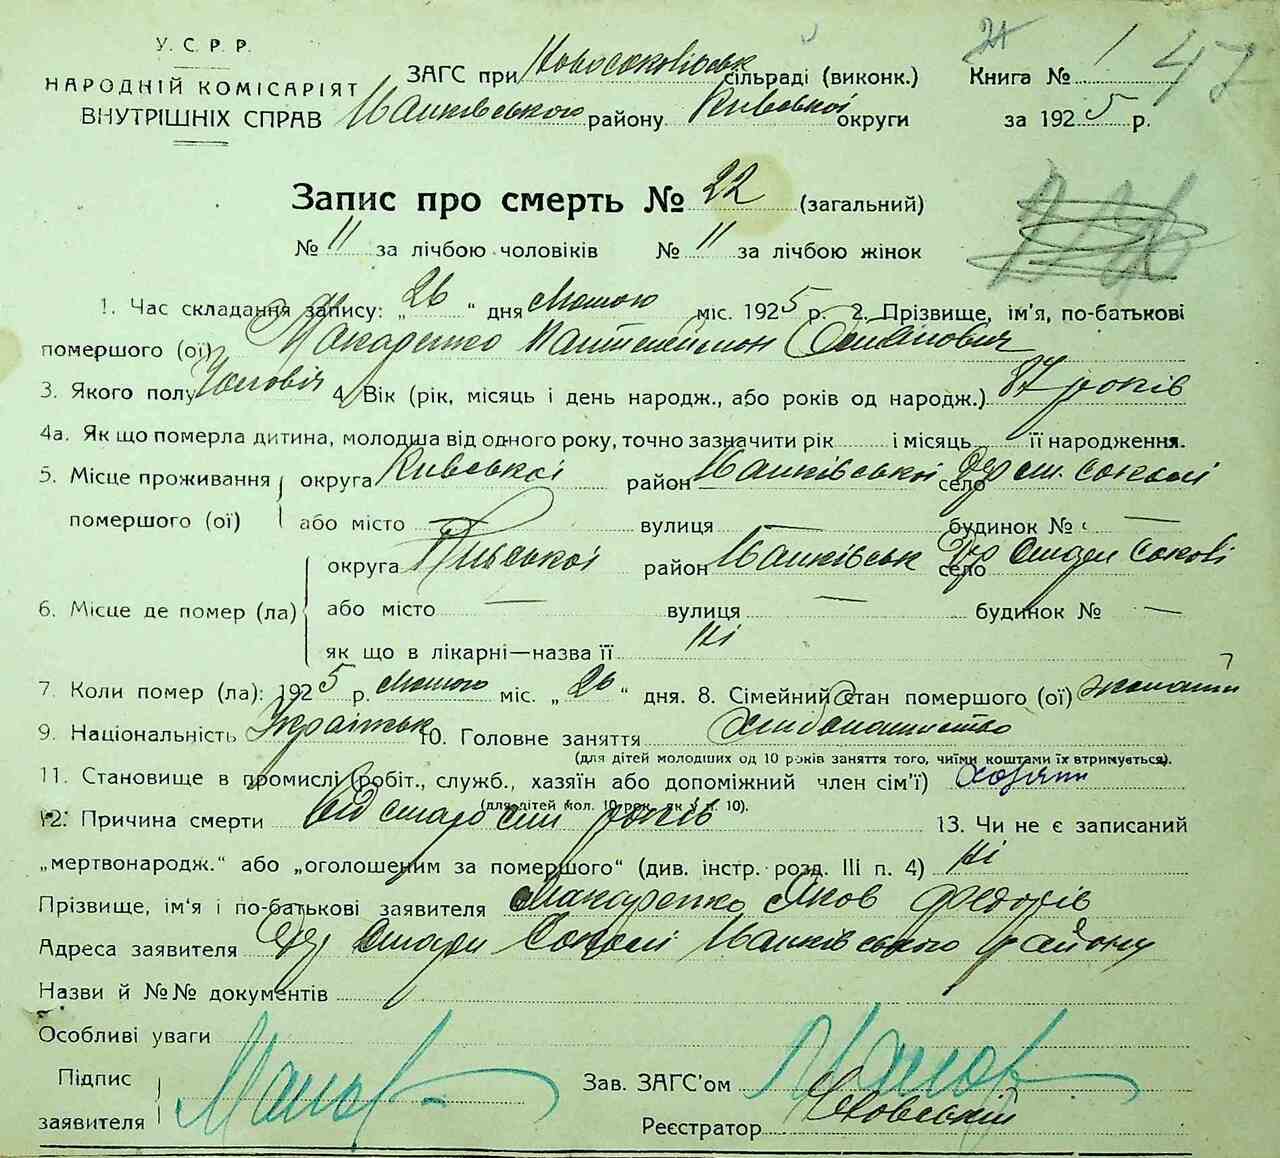 У. С. Р. Р.
НАРОДНІЙ КОМІСАРІЯТ
ВНУТРІШНІХ СПРАВ
ЗАГС при Новосоколівськ сільраді (виконк.)
району Київської округи
Книга № 1 47
за 1925 р.
Запис про смерть № 22 (загальний)
№ 11 за лічбою чоловіків № 11 за лічбою жінок
1. Час складання запису: „26“ дня Лютого міс. 1925 р. 2. Прізвище, ім'я, по-батькові
помершого (ої) Макаренко Пантелеймон
3. Якого полу Чоловіч 4. Вік (рік, місяць і день народж., або років од народж.) 87 років
4а. Як що померла дитина, молодша від одного року, точно зазначити рік і місяць її народження.
5. Місце проживання помершого (ої) округа Київської район село
або місто — вулиця — будинок № —
6. Місце де помер (ла) округа Київської район село
або місто — вулиця — будинок № —
як що в лікарні—назва її Ні
7. Коли помер (ла): 1925 р. Лютого міс. „26“ дня. 8. Сімейний стан помершого (ої)
9. Національність Українськ 10. Головне заняття
(для дітей молодших од 10 років заняття того, чиїми коштами їх втримується).
11. Становище в промислі (робіт., служб., хазяїн або допоміжний член сім'ї)
(для дітей мол. 10 рок. як у п. 10).
12. Причина смерти Від старости років 13. Чи не є записаний
„мертвонародж.“ або „оголошеним за помершого“ (див. інстр. розд. III п. 4) Ні
Прізвище, ім'я і по-батькові заявителя Макаренко Яков Федорів
Адреса заявителя Стари Соколі району
Назви й №№ документів
Особливі уваги
Підпис
заявителя
Зав. ЗАГС'ом
Реєстратор